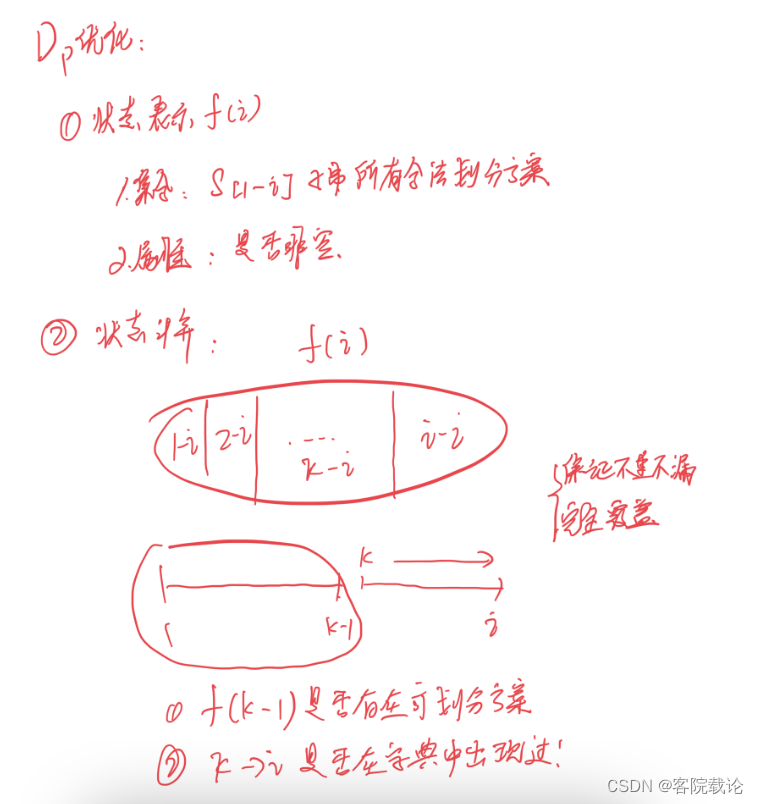 Dp优化:
① 状态表示 f(i)
1.集合: S[1-i] 子串所有合法划分方案
2.属性: 是否非空.
② 状态计算: f(i)
1-i 2-i ..... k-i i-i
保证不重不漏
完全覆盖
k
1 k-1 i
① f(k-1)是否存在可划分方案
② k->i 是否在字典中出现过!
CSDN @客院载论